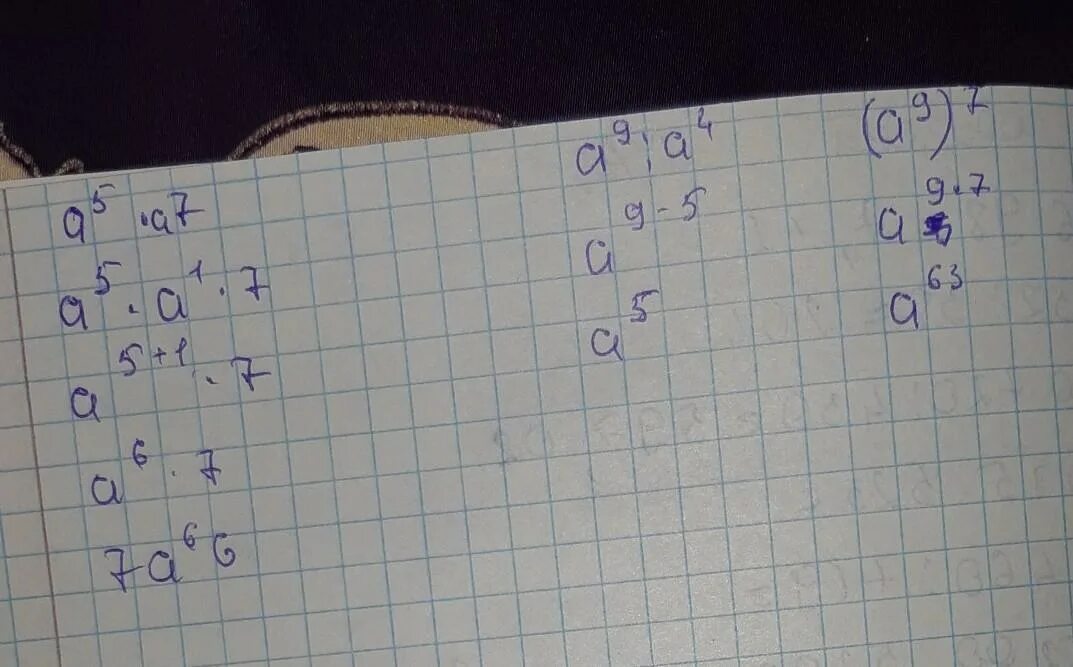 a⁵ · a7
a⁵ · a¹ · 7
a⁵⁺¹ · 7
a⁶ · 7
7a⁶ 6
a⁹ : a⁴
a⁹⁻⁵
a⁵
(a⁹)⁷
a⁹·⁷
a⁶³